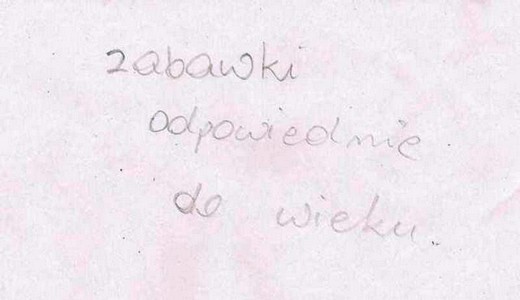 zabawki
odpowiednie
do wieku.